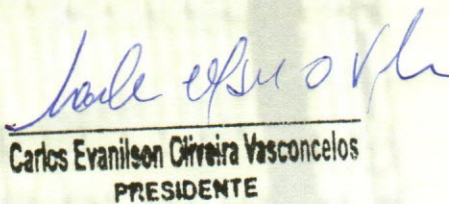 Carlos Evanilson Oliveira Vasconcelos
PRESIDENTE